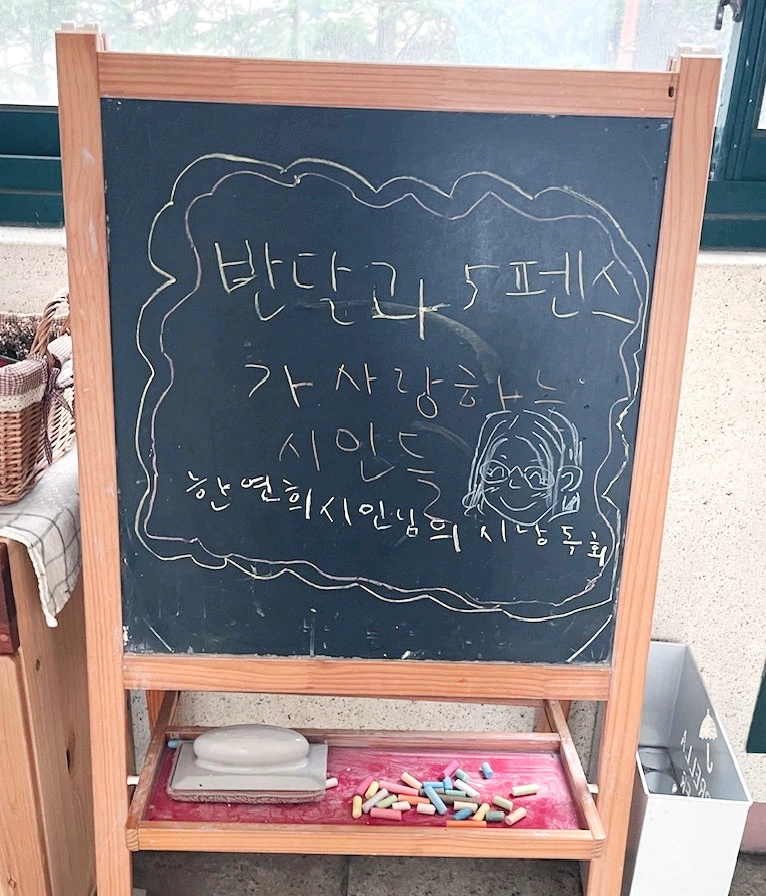 반달과 5펜스
가 사랑하는
시인들
한연희시인님의 시낭독회